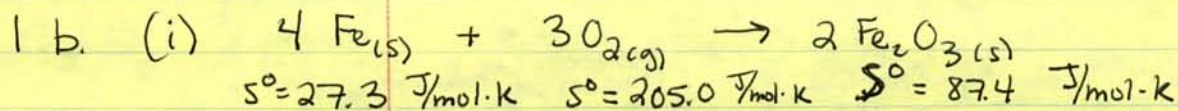 1 b. (i) 4 Fe(s) + 3 O2(g) → 2 Fe2O3(s)
S°=27.3 J/mol·K S°=205.0 J/mol·K S°=87.4 J/mol-K